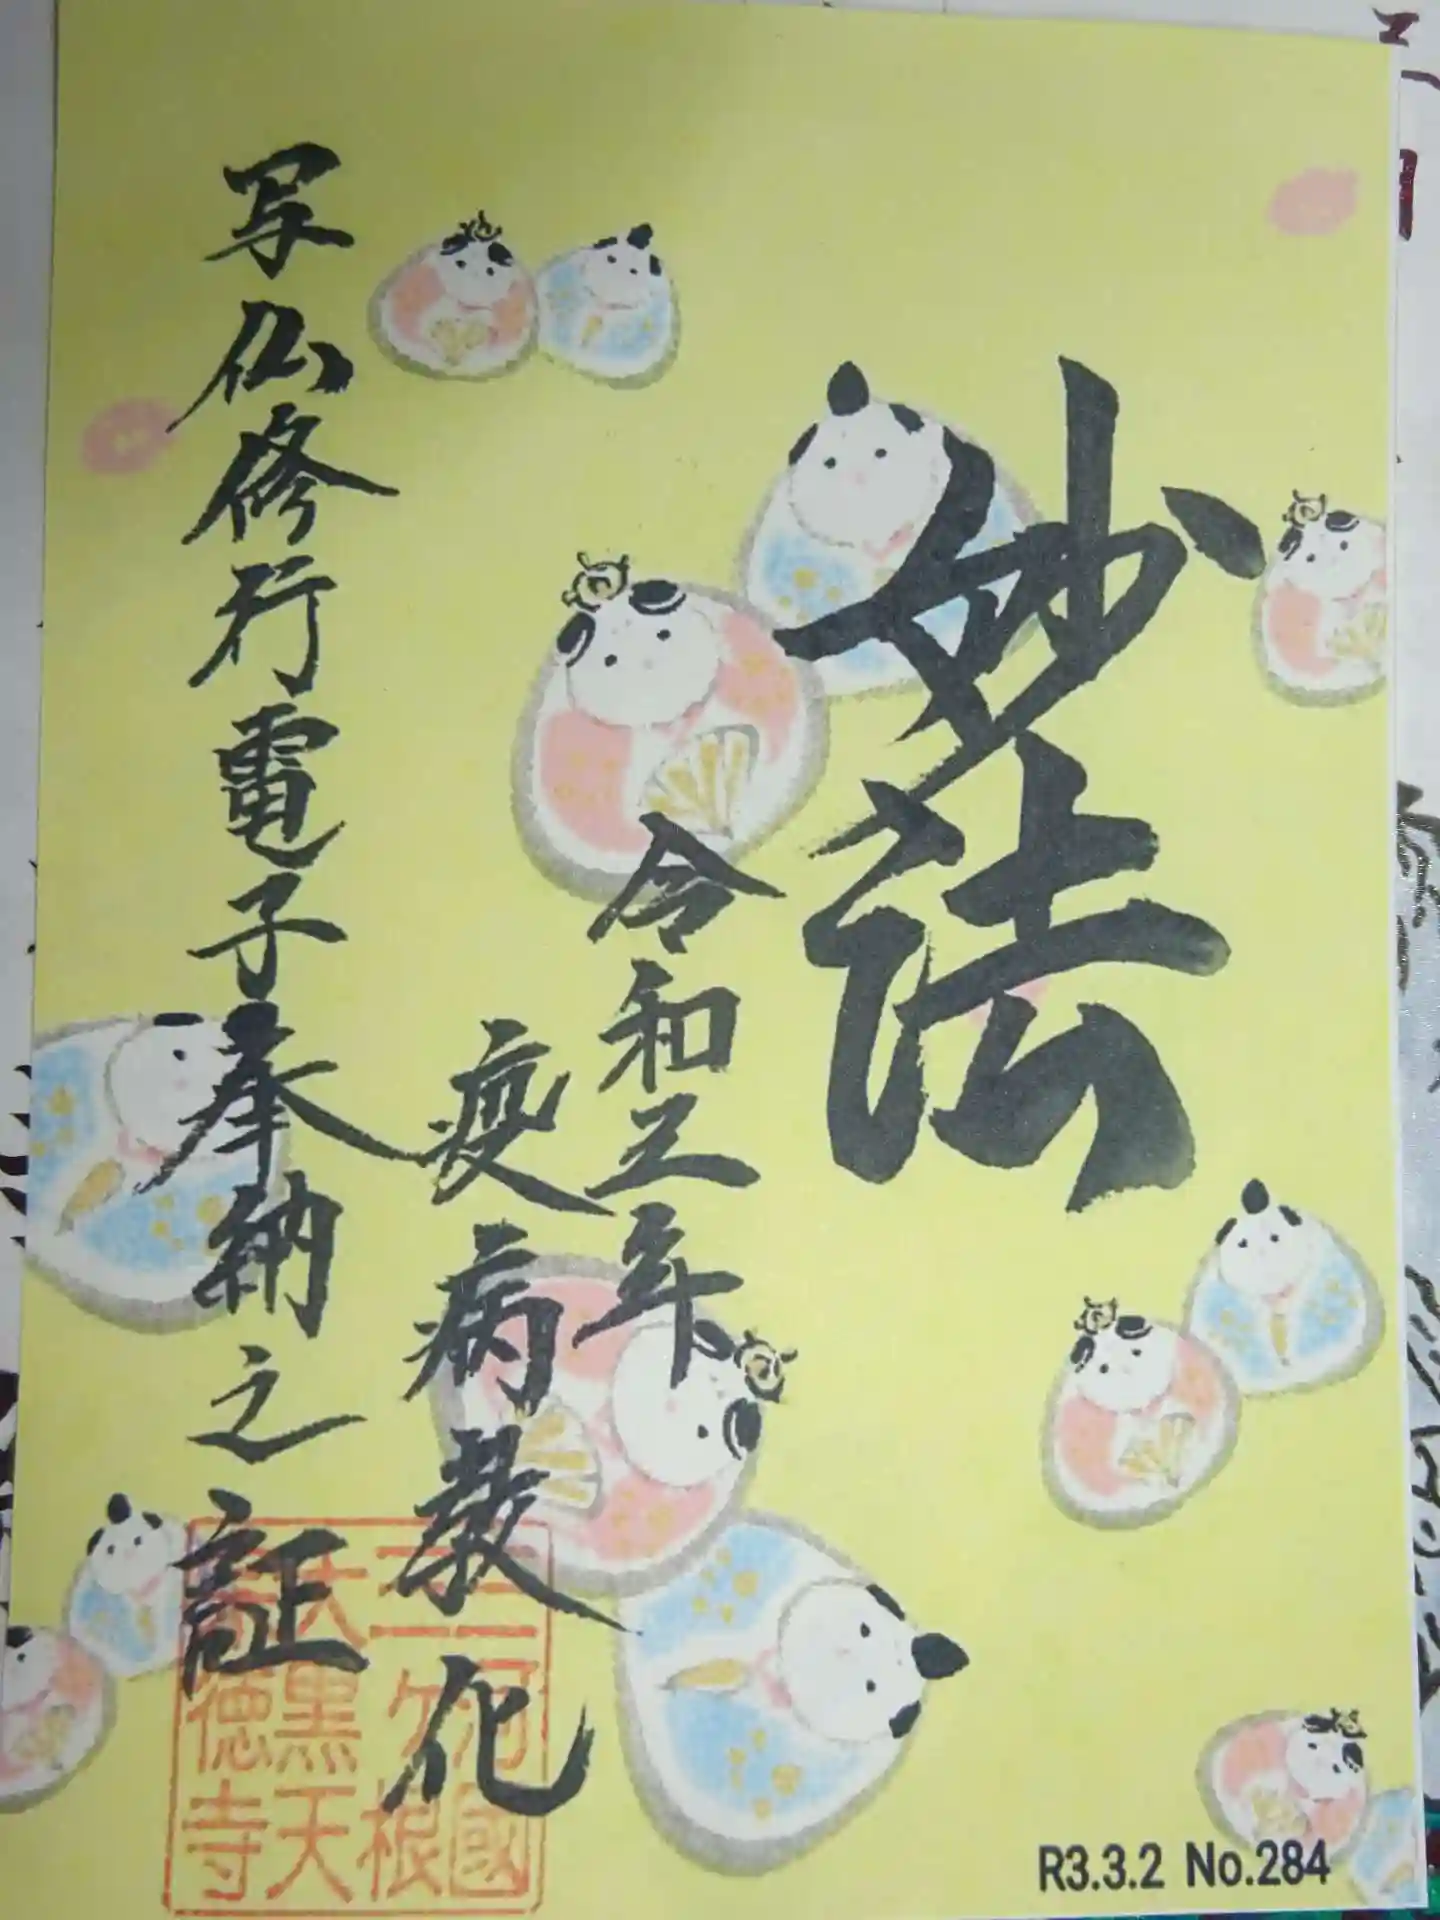 妙法
令和三年
疫病 化
写仏修行電子奉納之証
三河國
三ヶ根
大黒天
徳寺
R3.3.2 No.284